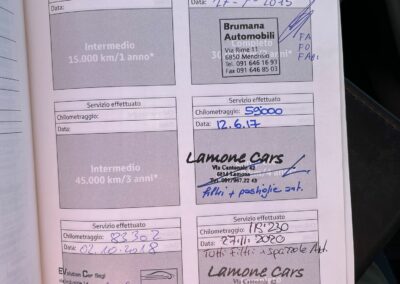 Data:
Intermedio
15.000 km/1 anno*
Data: 2015
Brumana
Automobili
Via Rime 11
6850 Mendrisio
Tel. 091 646 16 93
Fax 091 646 85 03
FA
FO
Servizio effettuato
Chilometraggio:
Data:
Intermedio
45.000 km/3 anni*
Servizio effettuato
Chilometraggio: 59000
Data: 12.6.17
Lamone Cars
Via Cantonale 42
6814 Lamone
filtri + pastiglie ant.
Servizio effettuato
Chilometraggio: 83302
Data: 02.10.2018
EVolution Car Sagl
Servizio effettuato
Chilometraggio: 115'230
Data: 27.11.2020
Tutti Filtri + Spazzole Ant.
Lamone Cars
Via Cantonale 42